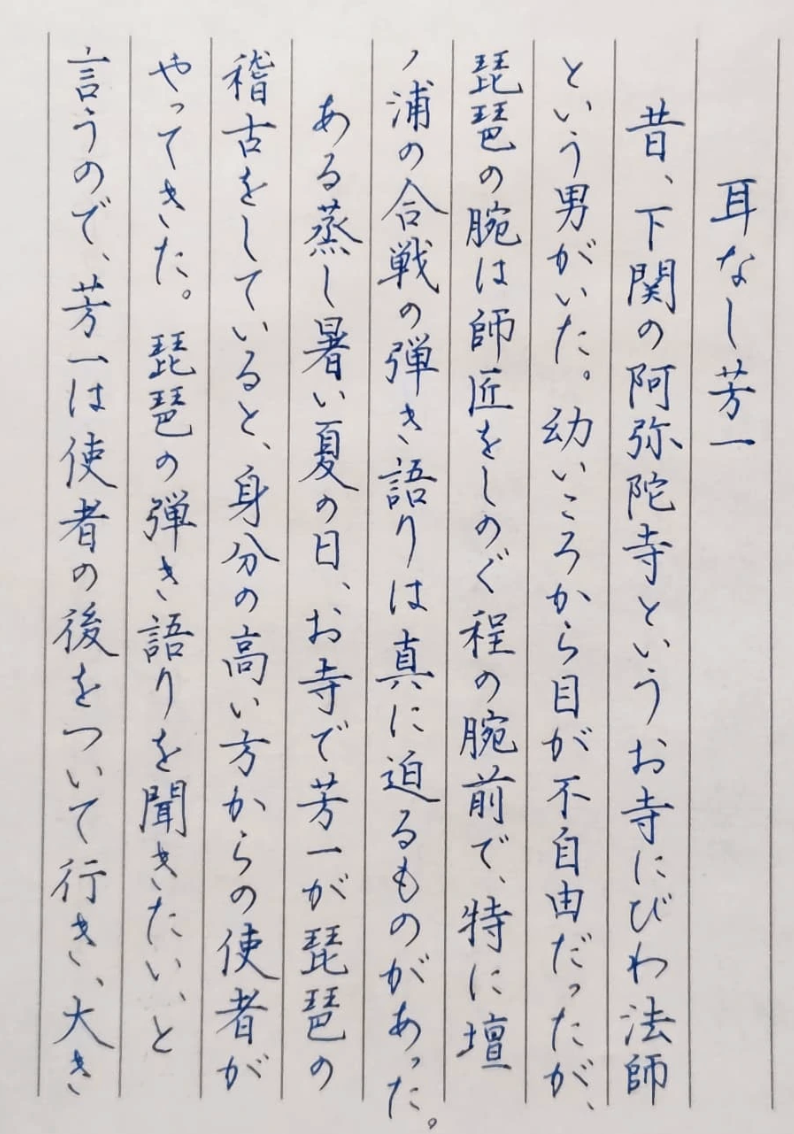 耳なし芳一
昔、下関の阿弥陀寺というお寺にびわ法師
という男がいた。幼いころから目が不自由だったが、
琵琶の腕は師匠をしのぐ程の腕前で、特に壇
ノ浦の合戦の弾き語りは真に迫るものがあった。
ある蒸し暑い夏の日、お寺で芳一が琵琶の
稽古をしていると、身分の高い方からの使者が
やってきた。琵琶の弾き語りを聞きたい、と
言うので、芳一は使者の後をついて行き、大き